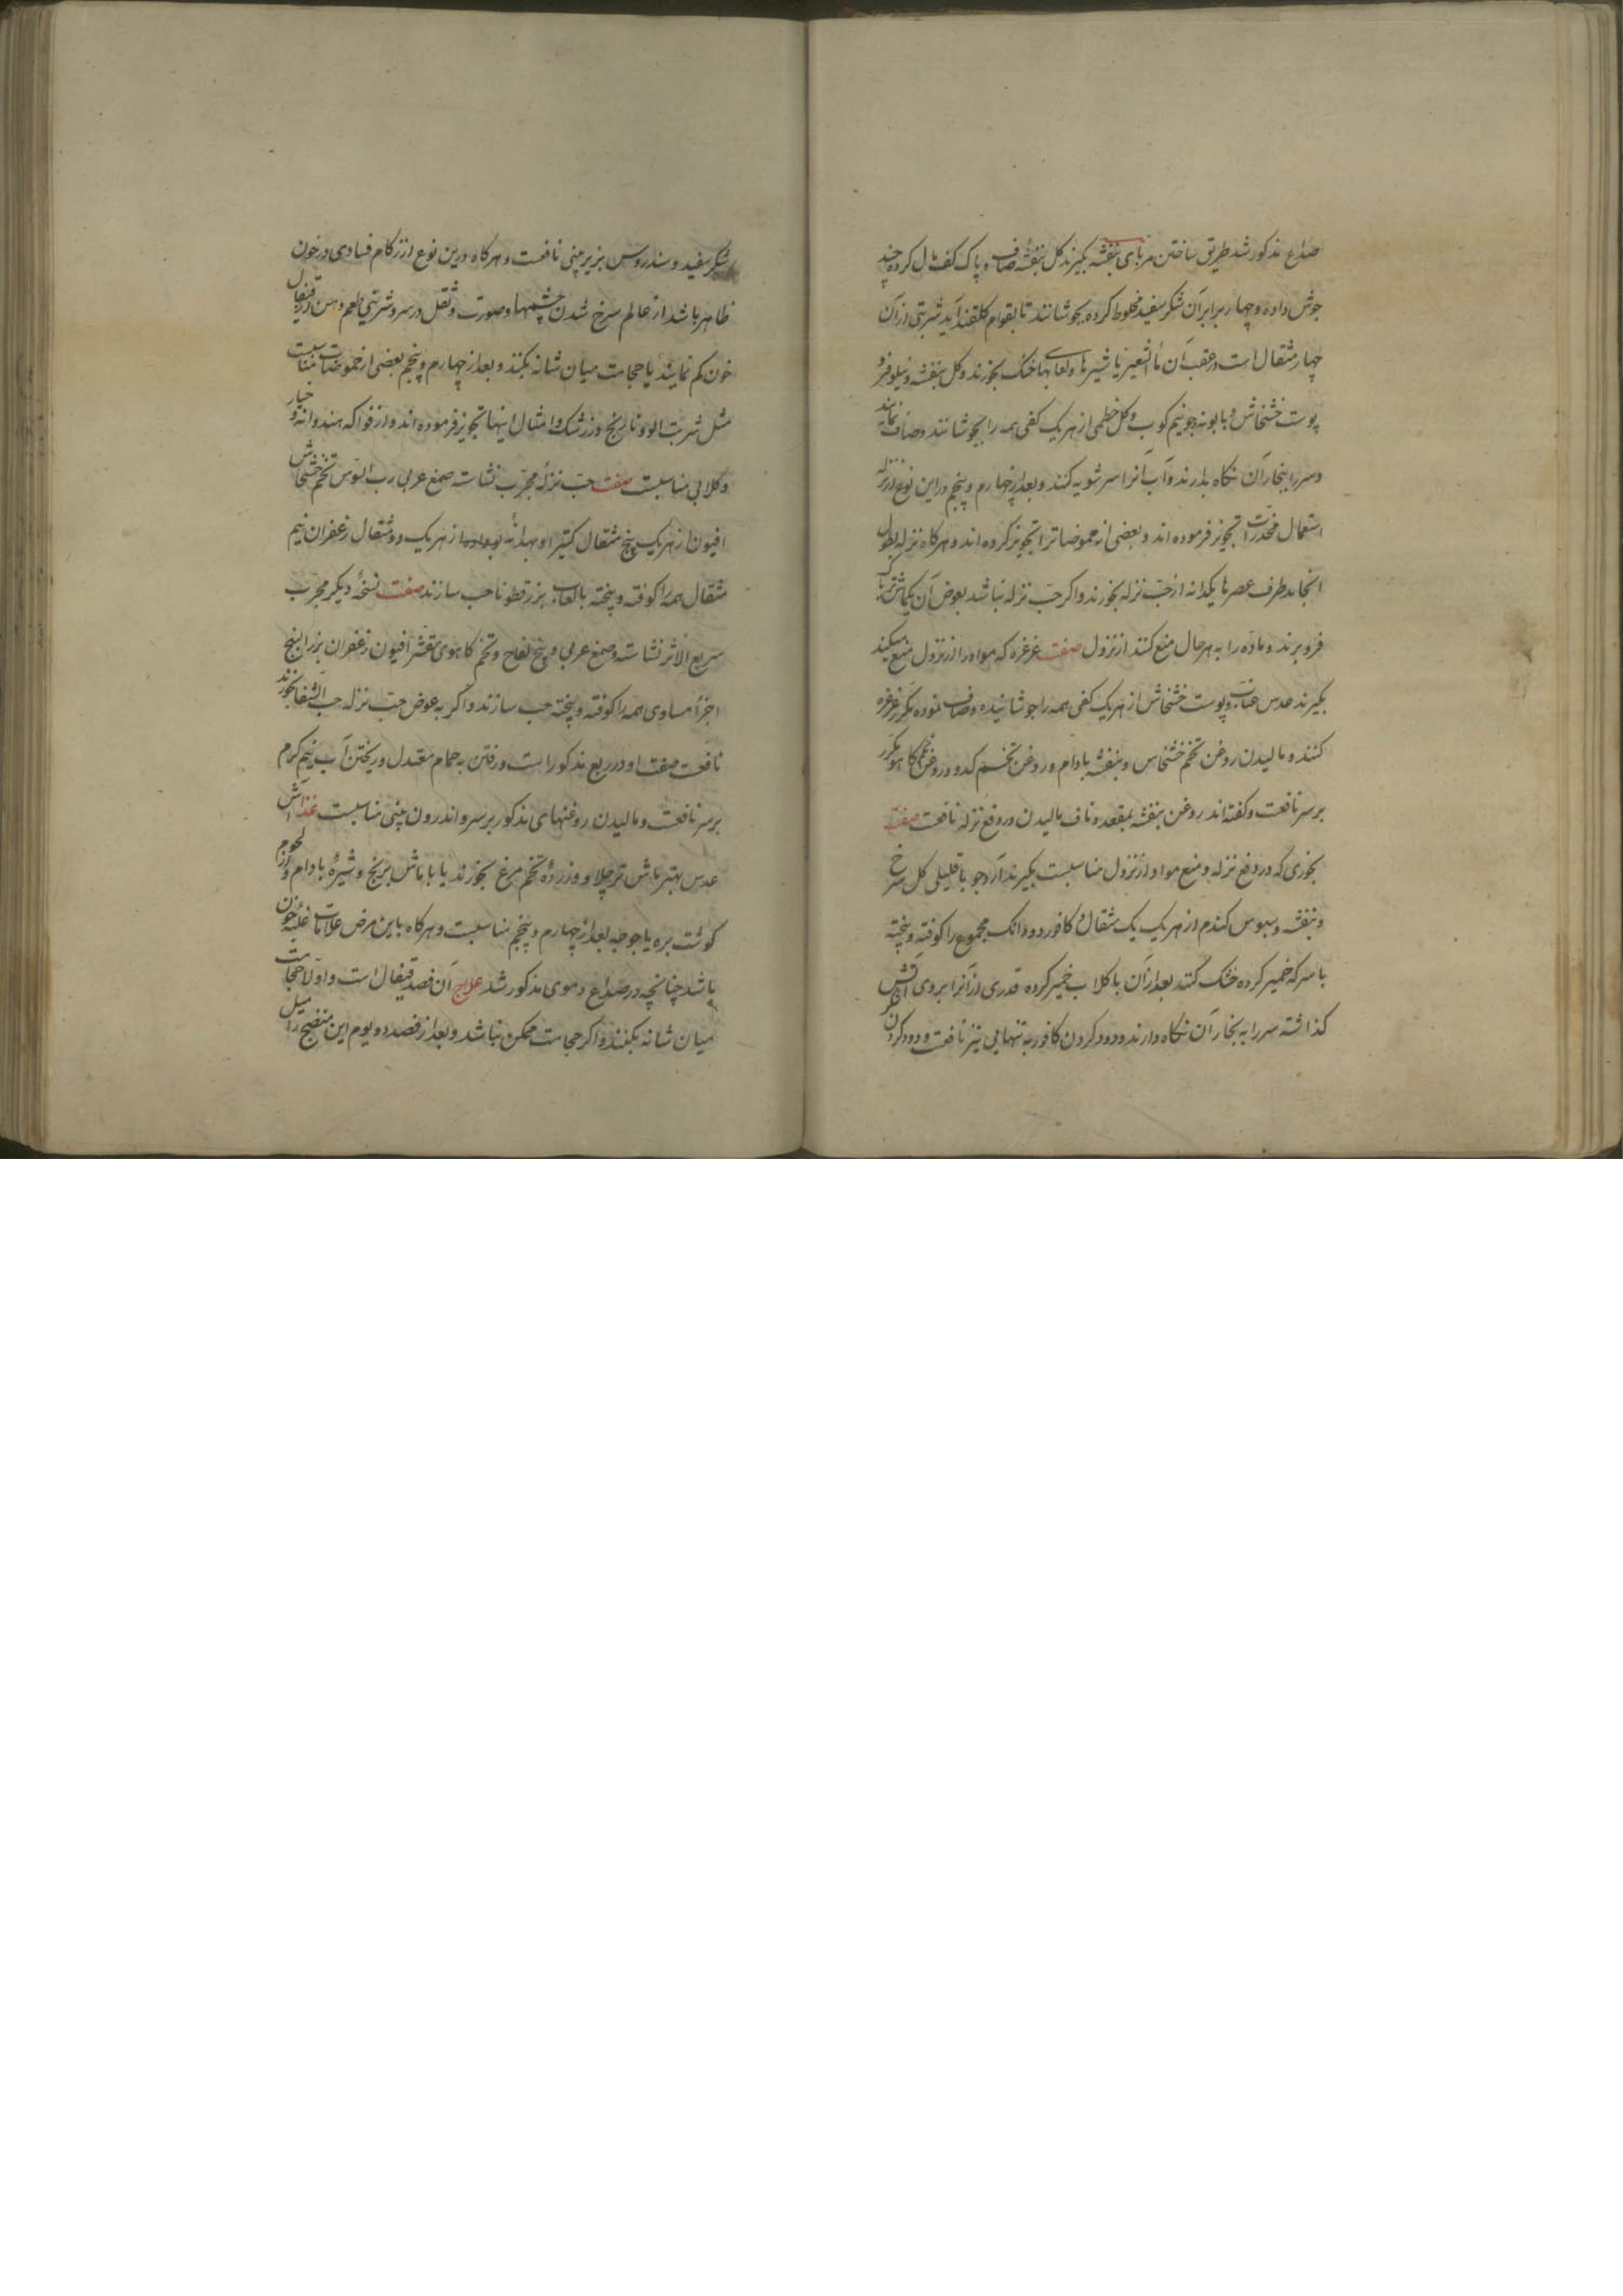 صداع مذکور شد طریق ساختن مربای بنفشه بکیرند کل بنفشه صاف و پاک کف مال کرده چند
جوش داده و چهار برابر آن شکر سفید مخلوط کرده بجوشانند تا بقوام کلقند آید شربتی از آن
چهار مثقال است و در عقب آن ماء الشعیر یا شیرها و لعابهای خنک بخورند و کل بنفشه و نیلوفر و
پوست خشخاش و بابونه و جو نیم کوب و کل خطمی از هر یک کفی همه را بجوشانند و صاف نمایند
و سر را ببخار آن نکاه بدارند و آب آنرا سر شویه کنند و بعد از چهارم و پنجم در این نوع از نزله
استعمال مخدرات تجویز فرموده اند و بعضی از حموضاترا تجویز کرده اند و هر کاه نزله بطول
انجامد طرف عصرها یکدانه از حب نزله بخورند و اکر حب نزله نباشد بعوض آن یکماش تریاک
فرو برند و ماده را به هر حال منع کنند از نزول صفت غرغره که مواد را از نزول منع میکند
بکیرند عدس عناب و پوست خشخاش از هر یک کفی همه را جوشانیده و صاف نموده مکرر غرغره
کنند و مالیدن روغن تخم خشخاس و بنفشه بادام و روغن تخم کدو و روغن تخم کاهو مکرر
بر سر نافعست و کفته اند روغن بنفشه بمقعد و ناف مالیدن در رفع نزله نافعست صفت
بخوری که در دفع نزله و منع مواد از نزول مناسبست بکیرند آرد جو باقلیلی کل سرخ
و بنفشه و سبوس کندم از هر یک یک مثقال و کافور دو دانک مجموع را کوفته و بیخته
با سرکه خمیر کرده خشک کنند بعد از آن با کلاب خمیر کرده قدری از آنرا بر روی آتش
کذاشته سر را به بخار آن نکاه دارند و دود کردن کافور به تنهایی نیز نافعست و دود کردن
شکر سفید و سندروس بزیر بینی نافعست و هر کاه درین نوع از زکام فسادی در خون
ظاهر باشد از عالم سرخ شدن چشمها و صورت و ثقل در سر و شیرینی طعم دهن از قیفال
خون کم نمایند یا حجامت میان شانه بکنند و بعد از چهارم و پنجم بعضی از حموضات مناسبست
مثل شربت الو و نارنج و زرشک و امثال اینها تجویز فرموده اند و از فواکه هندوانه و خیار
و کلابی مناسبست صفت حب نزله مجرب نشاسته صمغ عربی رب السوس تخم خشخاش
افیون از هر یک پنج مثقال کتیرا و بهدانه از هر یک دو مثقال زعفران نیم
مثقال همه را کوفته و بیخته بالعاب بزرقطونا حب سازند صفت نسخه دیکر مجرب
سریع الاثر نشاسته و صمغ عربی و بیخ لفاح و تخم کاهوی مقشر افیون زعفران بزرالبنج
اجزا مساوی همه را کوفته و بیخته حب سازند و اکر به عوض حب نزله حب الشفا بخورند
نافعست صفت او در ربع مذکور است و رفتن به حمام معتدل و ریختن آب نیم کرم
بر سر نافعست و مالیدن روغنهای مذکور بر سر و اندرون بینی مناسبست غذا آش
عدس بهتر ماش قر چلاو و زرده تخم مرغ بخورند یا با ماش برنج و شیره بادام و از لحوم
کوشت بره یا جوجه بعد از چهارم و پنجم مناسبست و هر کاه باین مرض علامات غلبه خون
باشد چنانچه در صداع دموی مذکور شد علاج آن فصد قیفال است و اولا حجامت
میان شانه بکنند و اکر حجامت ممکن نباشد و بعد از فصد دو یوم این منضج را میل